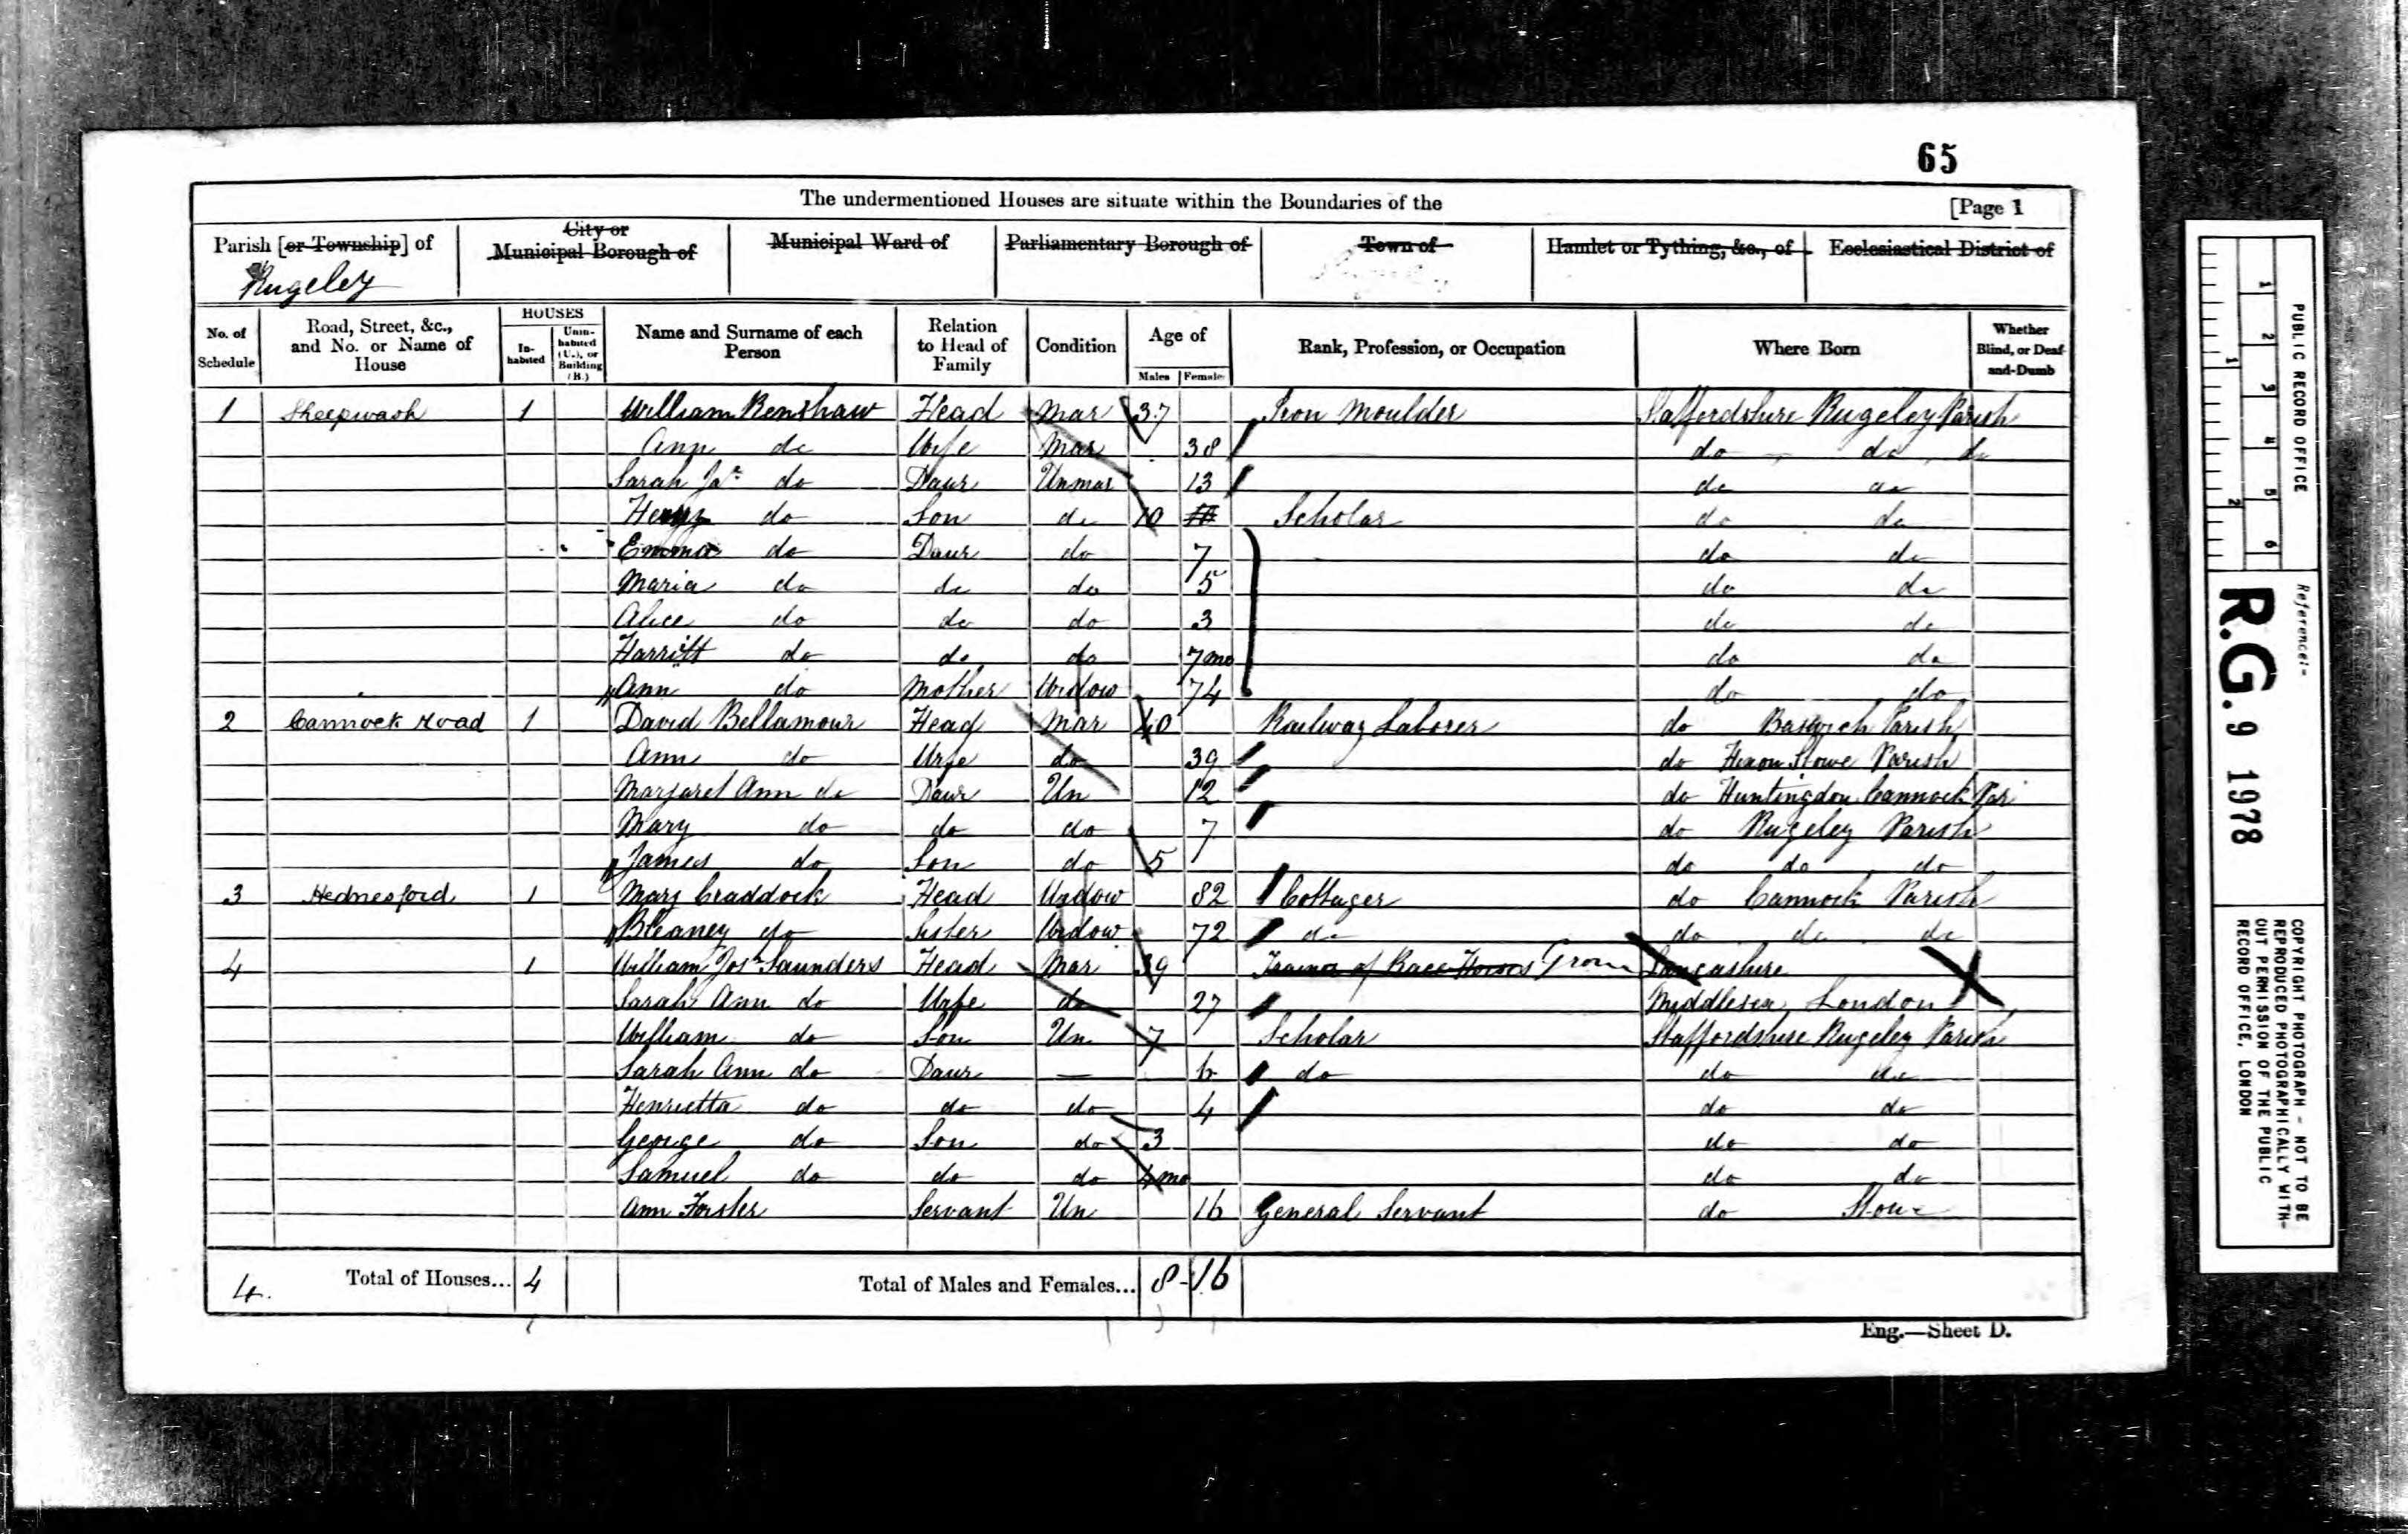 65
The undermentioned Houses are situate within the Boundaries of the [Page 1
Parish [or Township] of City or Municipal Borough of Municipal Ward of Parliamentary Borough of Town of Hamlet or Tything, &c., of Ecclesiastical District of
Rugeley
No. of Schedule Road, Street, &c., and No. or Name of House HOUSES Inhabited Uninhabited (U.), or Building (B.) Name and Surname of each Person Relation to Head of Family Condition Age of Males Females Rank, Profession, or Occupation Where Born Whether Blind, or Deaf-and-Dumb
1 Sheepwash 1 William Renshaw Head Mar 37 Iron Moulder Staffordshire Rugeley Parish
Ann do Wife Mar 38 do do do
Sarah Jas do Daur Unmar 13 do do
Henry do Son do 10 Scholar do do
Emma do Daur do 7 do do
Maria do do do 5 do do
Alice do do do 3 do do
Harritt do do do 7 mo do do
Ann do Mother Widow 74 do do
2 Cannock Road 1 David Bellamour Head Mar 40 Railway Laborer do Baswich Parish
Ann do Wife do 39 do Hixon Stowe Parish
Margaret Ann do Daur Un 12 do Huntingdon Cannock Par
Mary do do do 7 do Rugeley Parish
James do Son do 5 do do do
3 Hednesford 1 Mary Craddock Head Widow 82 Cottager do Cannock Parish
Bleaney do Sister Widow 72 do do do do
4 1 William Jos Saunders Head Mar 39 Trainer of Race Horses Groom Lancashire
Sarah Ann do Wife do 27 Middlesex London
William do Son Un 7 Scholar Staffordshire Rugeley Parish
Sarah Ann do Daur — 6 do do do
Henrietta do do do 4 do do
George do Son do 3 do do
Samuel do do do 4 mo do do
Ann Forster Servant Un 16 General Servant do Stowe
4 Total of Houses... 4 Total of Males and Females... 8 - 16
Eng.—Sheet D.
PUBLIC RECORD OFFICE
1 2 3 4 5 6
1 2
Reference:-
R.G. 9 1978
COPYRIGHT PHOTOGRAPH - NOT TO BE
REPRODUCED PHOTOGRAPHICALLY WITH-
OUT PERMISSION OF THE PUBLIC
RECORD OFFICE, LONDON